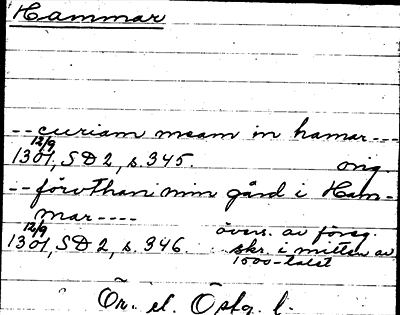 Hammar
-- curiam meam in hamar ---
12/9
1301, SD 2, s. 345. orig.
-- förvthan min gård i Ham-
mar ----
12/9 övers. av föreg.
1301, SD 2, s. 346. skr. i mitten av
1500-talet
Ör. el. Östg. l.